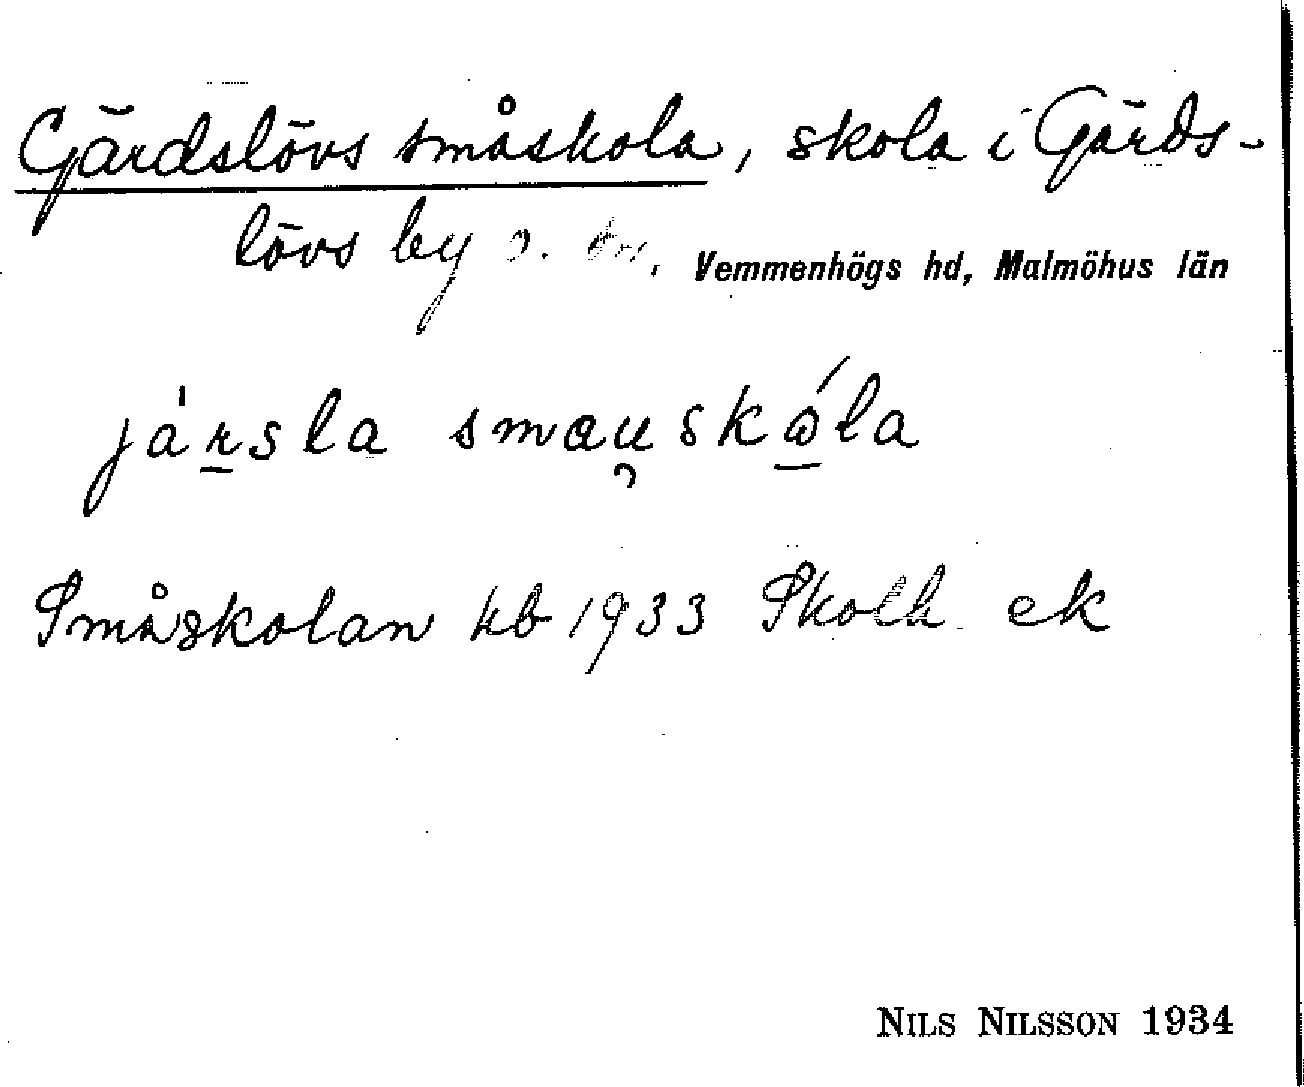 Gärdslövs småskola, skola i Gärds-
lövs by o. sn, Vemmenhögs hd, Malmöhus län
jársla smau̯skǻla
Småskolan kb 1933 Skolk ek
NILS NILSSON 1934